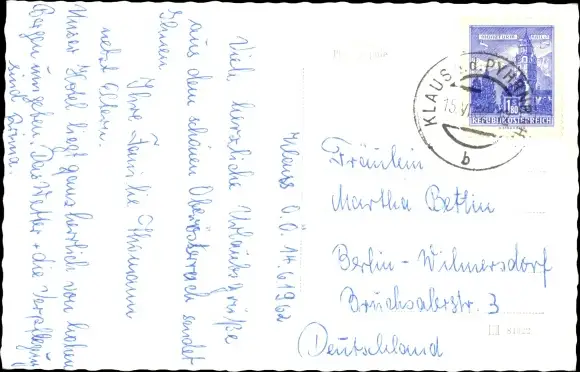 Klaus O.Ö. 14.6.1962
Viele herzliche Urlaubsgrüße
aus dem schönen Oberösterreich sendet
Ihnen
Ihre Familie
nebst Eltern.
Unser Hotel liegt ganz herrlich von hohen
Bergen umgeben. Das Wetter + die Verpflegung
sind prima.
KLAUS a.d. PYHRNBAHN
15.VI
b
REPUBLIK ÖSTERREICH
Fräulein
Martha Betlin
Berlin-Wilmersdorf
Bruchsalerstr. 3
Deutschland